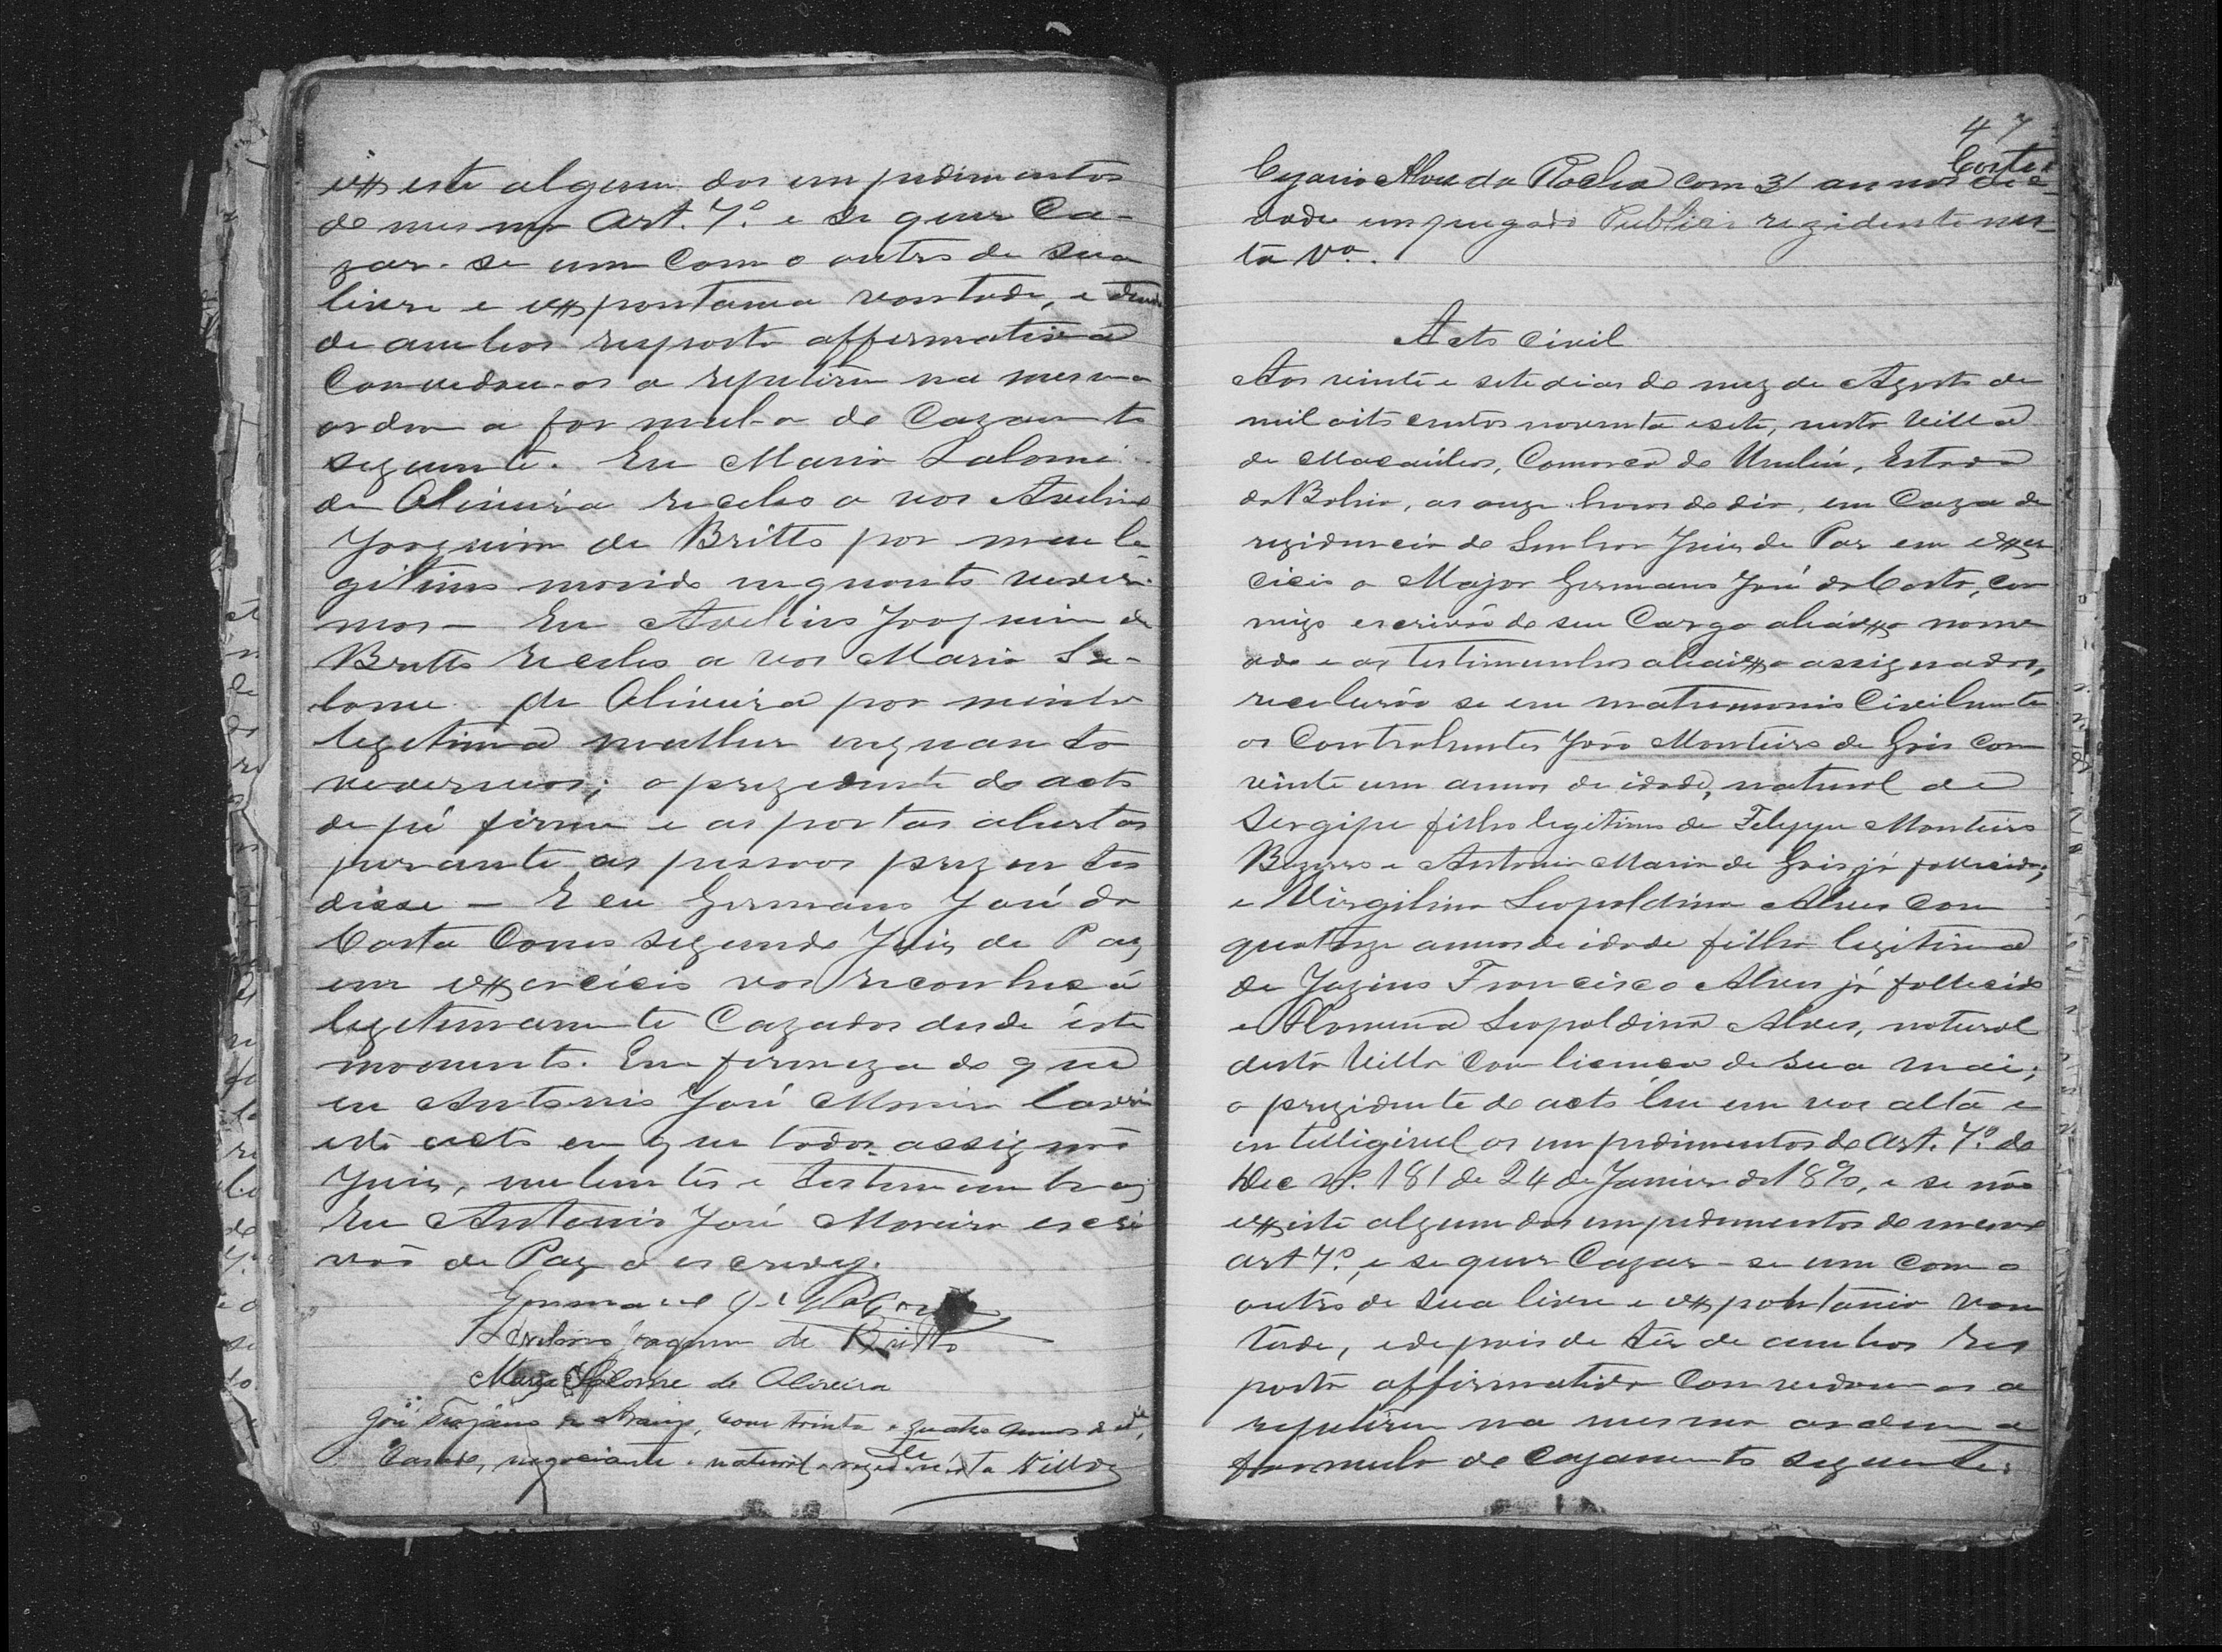 existe algum dos impedimentos
do mesmo Art. 7.º e se quer Ca-
zar-se um com o outro de sua
livre e expontania vontade, e tendo
de ambos resposta affermativa
Convedou-os a repitirem na mesma
ordem a formula do Cazamento
seguinte. Eu Maria Salomé
de Oliveira recebo a vos Avelino
Joaquim de Britto por meu le-
gitimo marido enquanto viver-
mos — Eu Avelino Joaquim de
Britto recebo a vos Maria Sa-
lome de Oliveira por minha
legitima mulher enquanto
vevermos; o prezedente do acto
de pé firme e as portas abertas
perante as pessoas prezentes
disse — E eu Germano José da
Costa Como segundo Juiz de Paz
em exercicio vos reconheço
legitimamente Cazados desde este
momento. Em firmeza do que
eu Antonio José Moreira lavrei
este acto em que todos assignão
Juiz, nubentes e testemunhas
Eu Antonio José Moreira escri
vão de Paz o escrevy.
Germano José da Costa
Avelino Joaquim de Britto
Maria Salome de Oliveira
José Trajano de Araujo, com trinta e quatro annos de id.e,
Casado, negociante natural e rezidente nésta Villa
47
Costa
Cezario Alves da Rocha com 31 annos de i-
dade empregado Publico rezidente nes-
ta Va.
Acto Civil
Aos vinte e sete dias do mez de Agosto de
mil oito centos noventa e sete, nesta Villa
de Macaúbas, Comarca de Urubú, Estado
da Bahia, as onze horas do dia, em Caza de
rezidencia do Senhor Juiz de Paz em exer
cicio o Major Germano José da Costa, com
migo escrivão de seu Cargo abáixo nome
ado e as testimunhas abaixo assignados,
receberão se em matrimonio Civilmente
os Contrahentes João Monteiro de Gois com
vinte um annos de idade, natural de
Sergipe filho legitimo de Felippe Monteiro
Bezerra e Antonia Maria de Gois já fallecida;
e Virgilina Leopoldina Alves com
quatorze annos de idade filha legitima
de Jozino Francisco Alves já fallecido
e Leopoldina Alves, natural
desta Villa com licença de sua mai;
o prezidente do acto leu em vos alta e
intilligivel os impedimentos do Art. 7.º do
Dec Nº. 181 de 24 de Janeiro de 1890, e se não
existe algum dos impedimentos do mesmo
art 7.º, e se quer Cazar-se um com o
outro de sua livre e expontania von
tade, e depois de ter de ambos res
posta affirmativa Convedou-os a
repitirem na mesma ordem a
formula do Cazamento seguinte: